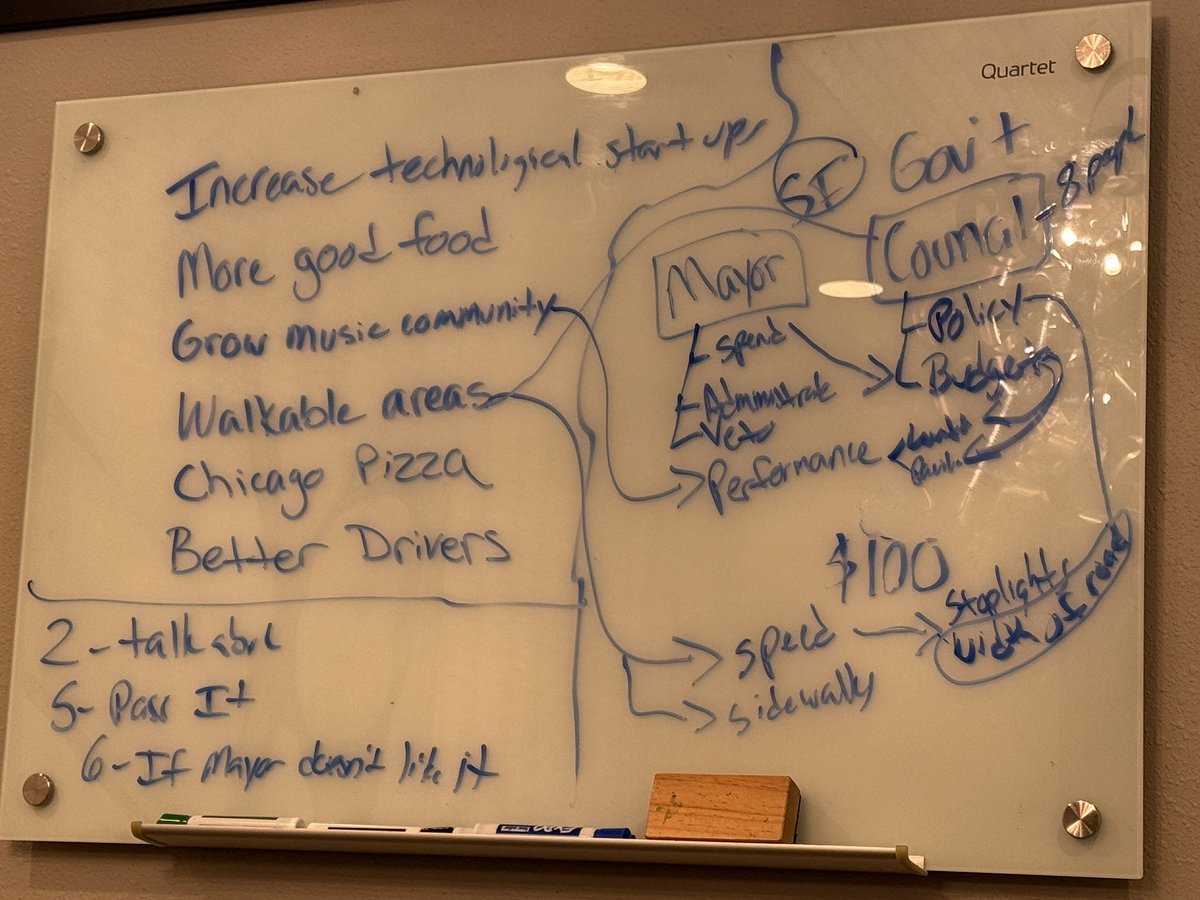 Quartet
Increase technological start ups
More good food
Grow music community
Walkable areas
Chicago Pizza
Better Drivers
2 - talk
5 - Pass It
6 - If Mayor doesn't like it
SF
Gov't
Council - 8 people
Mayor
Spend
Administrate
Veto
Performance
Policy
$100
speed
Stoplights
width of road